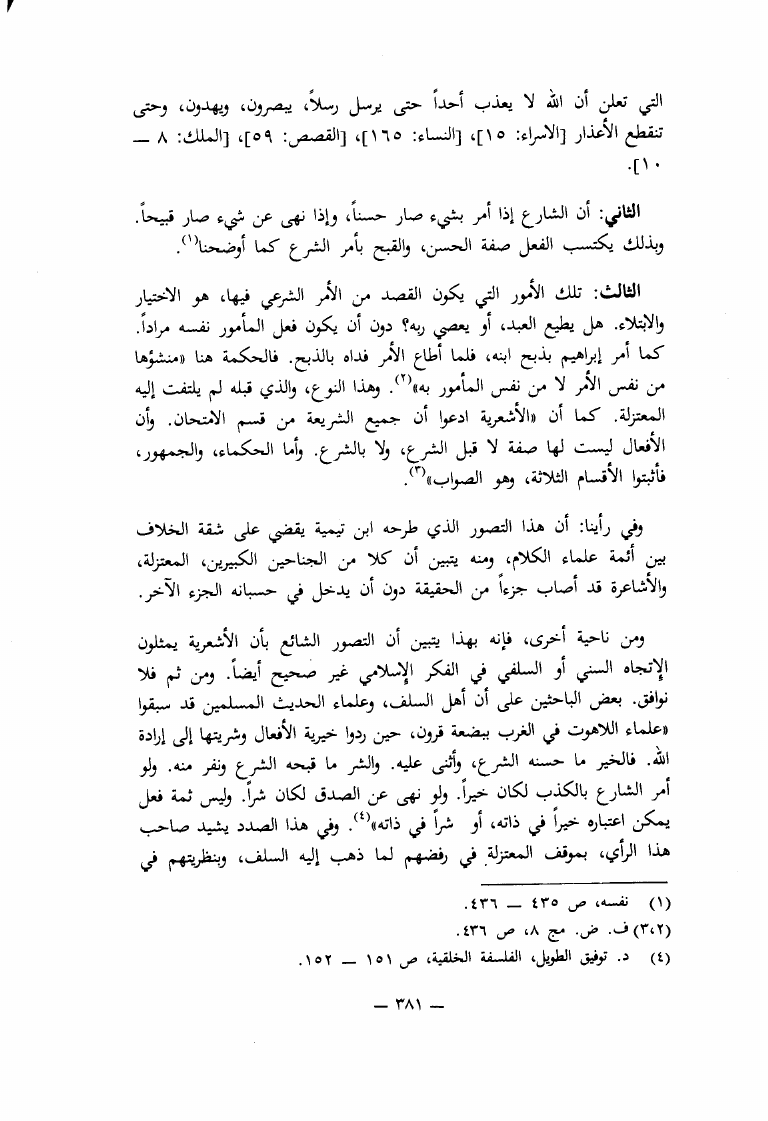 التي تعلن أن الله لا يعذب أحداً حتى يرسل رسلاً، يبصرون، ويهدون، وحتى
تنقطع الأعذار [الاسراء: ١٥]، [النساء: ١٦٥]، [القصص: ٥٩]، [الملك: ٨ —
١٠].
الثاني: أن الشارع إذا أمر بشيء صار حسناً، وإذا نهى عن شيء صار قبيحاً.
وبذلك يكتسب الفعل صفة الحسن، والقبح بأمر الشرع كما أوضحنا(١).
الثالث: تلك الأمور التي يكون القصد من الأمر الشرعي فيها، هو الاختيار
والابتلاء. هل يطيع العبد، أو يعصي ربه؟ دون أن يكون فعل المأمور نفسه مراداً.
كما أمر إبراهيم بذبح ابنه، فلما أطاع الأمر فداه بالذبح. فالحكمة هنا «منشؤها
من نفس الأمر لا من نفس المأمور به»(٢). وهذا النوع، والذي قبله لم يلتفت إليه
المعتزلة. كما أن «الأشعرية ادعوا أن جميع الشريعة من قسم الامتحان. وأن
الأفعال ليست لها صفة لا قبل الشرع، ولا بالشرع. وأما الحكماء، والجمهور،
فأثبتوا الأقسام الثلاثة، وهو الصواب»(٣).
وفي رأينا: أن هذا التصور الذي طرحه ابن تيمية يقضي على شقة الخلاف
بين أئمة علماء الكلام، ومنه يتبين أن كلا من الجناحين الكبيرين، المعتزلة،
والأشاعرة قد أصاب جزءاً من الحقيقة دون أن يدخل في حسبانه الجزء الآخر.
ومن ناحية أخرى، فإنه بهذا يتبين أن التصور الشائع بأن الأشعرية يمثلون
الإتجاه السني أو السلفي في الفكر الإسلامي غير صحيح أيضاً. ومن ثم فلا
نوافق. بعض الباحثين على أن أهل السلف، وعلماء الحديث المسلمين قد سبقوا
«علماء اللاهوت في الغرب ببضعة قرون، حين ردوا خيرية الأفعال وشريتها إلى إرادة
الله. فالخير ما حسنه الشرع، وأثنى عليه. والشر ما قبحه الشرع ونفر منه. ولو
أمر الشارع بالكذب لكان خيراً. ولو نهى عن الصدق لكان شراً. وليس ثمة فعل
يمكن اعتباره خيراً في ذاته، أو شراً في ذاته»(٤). وفي هذا الصدد يشيد صاحب
هذا الرأي، بموقف المعتزلة في رفضهم لما ذهب إليه السلف، وبنظريتهم في
(١) نفسه، ص ٤٣٥ — ٤٣٦.
(٣،٢) ف. ض. مج ٨، ص ٤٣٦.
(٤) د. توفيق الطويل، الفلسفة الخلقية، ص ١٥١ — ١٥٢.
— ٣٨١ —